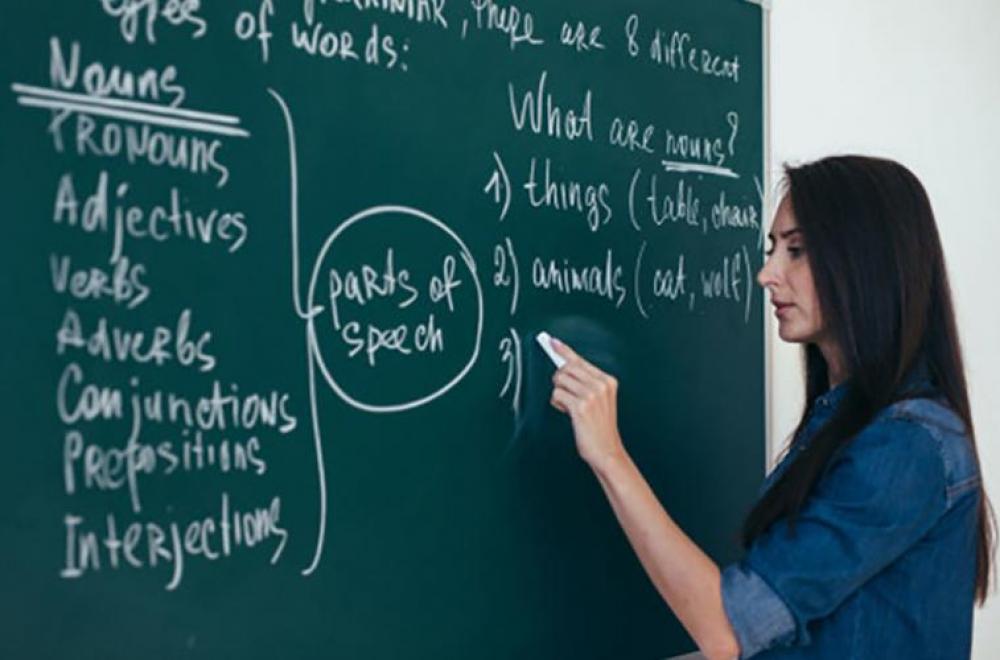 types of words:
GRAMMAR, there are 8 different
Nouns
Pronouns
Adjectives
Verbs
Adverbs
Conjunctions
Prepositions
Interjections
parts of
speech
What are nouns?
1) things (table, chair)
2) animals (cat, wolf)
3)